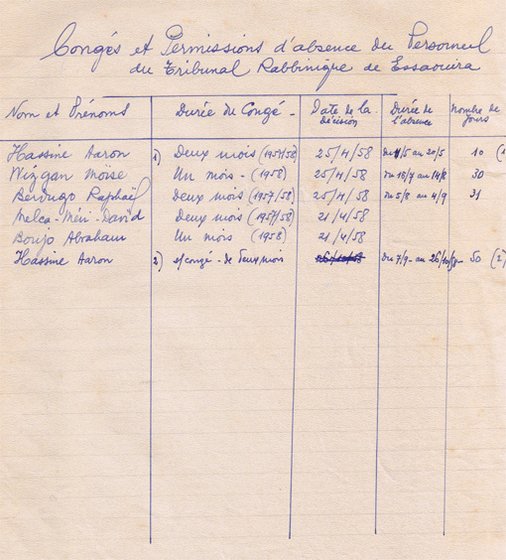 Congés et Permissions d'absence du Personnel
du Tribunal Rabbinique de Essaouira
Nom et Prénoms Durée du Congé - Date de la décision Durée de l'absence Nombre de jours
Hassine Aaron 1) Deux mois (1957/58) 25/4/58 au 20/5 10 (1
Wizgan Moïse Un mois - (1958) 25/4/58 Du 16/7 au 14/8 30
Berdugo Raphaël Deux mois (1957/58) 25/4/58 Du 5/8 au 4/9 31
Melca-Méir-David Deux mois (1957/58) 21/4/58
Boujo Abraham Un mois (1958) 21/4/58
Hassine Aaron 2) s/congé - de deux mois Du 7/9 - au 50 (2